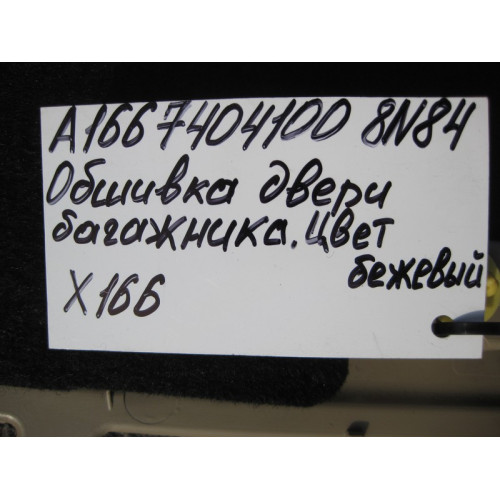 A1667404100 8N84
Обшивка двери
багажника. Цвет
бежевый
X166